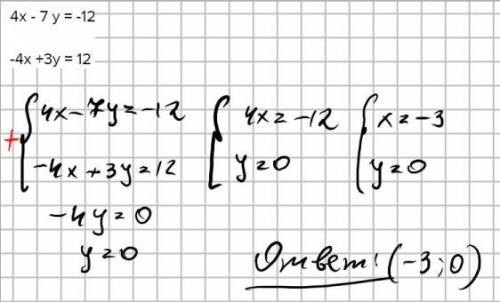 4x - 7 y = -12
-4x +3y = 12
+ { 4x-7y=-12
-4x+3y=12
-4y=0
y=0
{ 4x=-12
y=0
{ x=-3
y=0
Ответ: (-3;0)